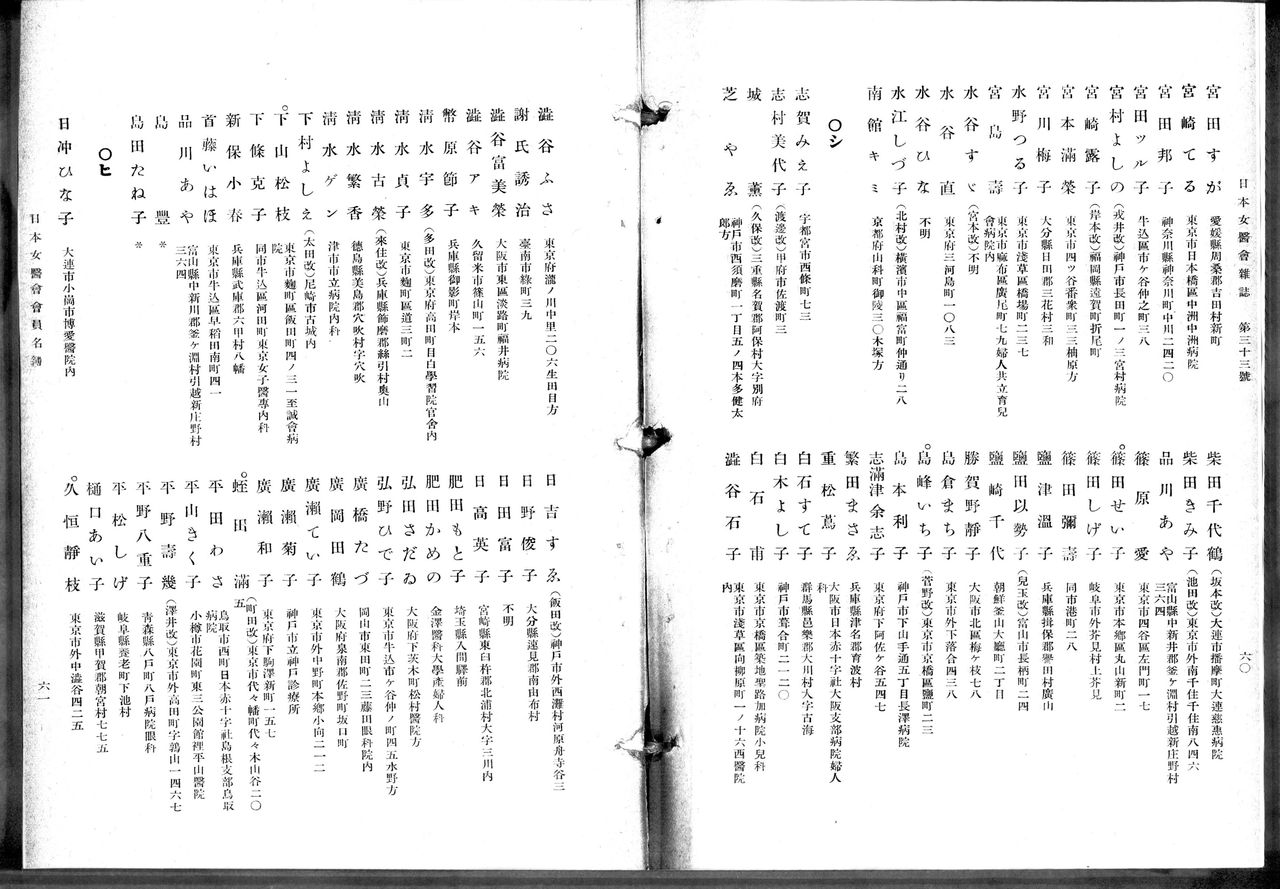 日本女醫會雜誌　第三十三號
六〇
宮田すが　愛媛縣周桑郡吉田村新町
宮崎てる　東京市日本橋區中洲中洲病院
宮田邦子　神奈川縣神奈川町中川二四二〇
宮田ツル子　牛込區市ケ谷仲之町三八
宮村よしの（戎井改）神戸市長田町一ノ三宮村病院
宮崎露子（岸本改）福岡縣遠賀町折尾町
宮本滿榮　東京市四ツ谷番衆町三三柚原方
宮川梅子　大分縣日田郡三花村三和
水野つる子　東京市淺草區橋場町二三七
宮島壽　東京市麻布區廣尾町七九婦人共立育兒會病院内
水谷すゞ（宮本改）不明
水谷直　東京府三河島町一〇八三
水谷ひな　不明
水江しづ子（北村改）橫濱市中區福富町仲通リ二八
南館キミ　京都府山科町御陵三〇木塚方
〇シ
志賀みえ子　宇都宮市西條町七三
志村美代子（渡邊改）甲府市佐渡町三
城薫（久保改）三重縣名賀郡阿保村大字別府
芝やゑ　神戸市西須磨町一丁目五ノ四本多健太郎方
柴田千代鶴（坂本改）大連市播摩町大連慈惠病院
柴田きみ子（池田改）東京市外南千住千住南八四六
品川あや　富山縣中新井郡釜ケ淵村引越新庄野村三六四
篠原愛　東京市四谷區左門町一七
篠田せい子　東京市本鄕區丸山新町二
篠田しげ子　岐阜市外芥見村上芥見
篠田彌壽　同市港町二八
鹽津溫子　兵庫縣揖保郡譽田村廣山
鹽田以勢子（兒玉改）富山市長柄町二四
鹽崎千代　朝鮮釜山大廳町二丁目
勝賀野靜子　大阪市北區梅ケ枝七八
島倉まち子　東京市外下落合四三八
島峰いち子（菅野改）東京市京橋區鹽町二三
島本利子　神戸市下山手通五丁目長澤病院
志滿津余志子　東京府下阿佐ケ谷五四七
繁田まさゑ　兵庫縣津名郡育波村
重松蔦子　大阪市日本赤十字社大阪支部病院婦人科
白石すて子　群馬縣邑樂郡大川村大字古海
白木よし子　神戸市葺合町二一二〇
白石甫　東京市京橋區築地聖路加病院小兒科
澁谷石子　東京市淺草區向柳原町一ノ十六西醫院内
澁谷ふさ　東京府瀧ノ川中里二〇六生田目方
謝氏誘治　臺南市綠町三九
澁谷富美榮　大阪市東區淡路町福井病院
澁谷アキ　久留米市篠山町一五六
幣原節子　兵庫縣御影町岸本
淸水宇多（多田改）東京府高田町目白學習院官舍内
淸水貞子　東京市麴町區道三町二
淸水古榮（來住改）兵庫縣飾磨郡絲引村奥山
淸水繁香　德島縣美島郡穴吹村字穴吹
淸水ゲン　津市市立病院内科
下村よしえ（太田改）尼崎市古城内
下山松枝　東京市麴町區飯田町四ノ三一至誠會病院
下條克子　同市牛込區河田町東京女子醫專内科
新保小春　兵庫縣武庫郡六甲村八幡
首藤いはほ　東京市牛込區早稻田南町四一
品川あや　富山縣中新川郡釜ケ淵村引越新庄野村三六四
島豐　＊
島田たね子　＊
〇ヒ
日冲ひな子　大連市小崗市博愛醫院内
日吉すゑ（飯田改）神戸市外西灘村河原舟寺谷三
日野俊子　大分縣速見郡南由布村
日田富子　不明
日高英子　宮崎縣東臼杵郡北浦村大字三川内
肥田もと子　埼玉縣入間驛前
肥田かめの　金澤醫科大學產婦人科
弘田さだゐ　大阪府下茨木町松村醫院方
弘野ひで子　東京市牛込市ケ谷仲ノ町四五水野方
廣橋たづ　岡山市東田町二三藤田眼科院内
廣岡田鶴　大阪府泉南郡佐野町坂口町
廣瀨てい子　東京市外中野町本鄕小向二一二
廣瀨菊子　神戸市立神戸診療所
廣瀨和子　東京府下駒澤新町一五七
蛭田滿（町田改）東京市代々幡町代々木山谷二〇五
平田わさ　鳥取市西町日本赤十字社島根支部鳥取病院
平山きく子　小樽市花園町東三公園館裡平山醫院
平野壽幾（澤井改）東京市外高田町字鶉山一四六七
平野八重子　靑森縣八戸町八戸病院眼科
平松しげ　岐阜縣養老町下池村
樋口あい子　滋賀縣甲賀郡朝宮村七七五
久恒靜枝　東京市外中澁谷四二五
日本女醫會會員名簿
六一